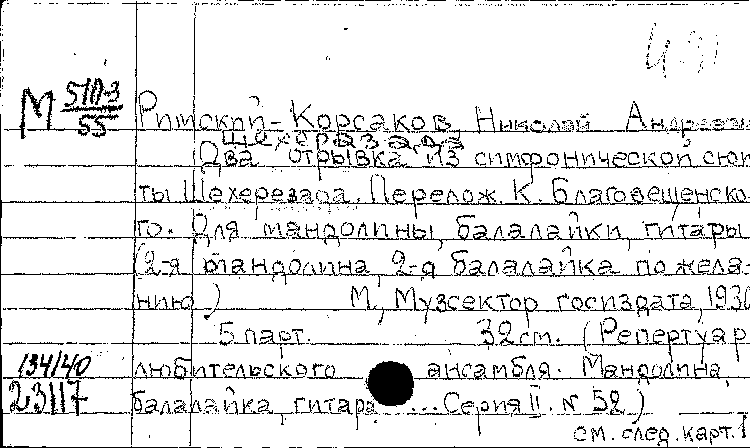 4-91
М 510-3
55
Римский-Корсаков, Николай Андрееви
Шехеразада
Два отрывка из симфонической сюи
ты Шехерезада. Перелож. К. Благовещенско
го. Для мандолины, балалайки, гитары
(2-я мандолина, 2-я балалайка по жела-
нию) М., Музсектор госиздата, 1930
5 парт. 32 ст. (Репертуар
134/40 любительского ансамбля. Мандолина,
23117 балалайка, гитара ... Серия II. N 52)
см. след. карт. 1